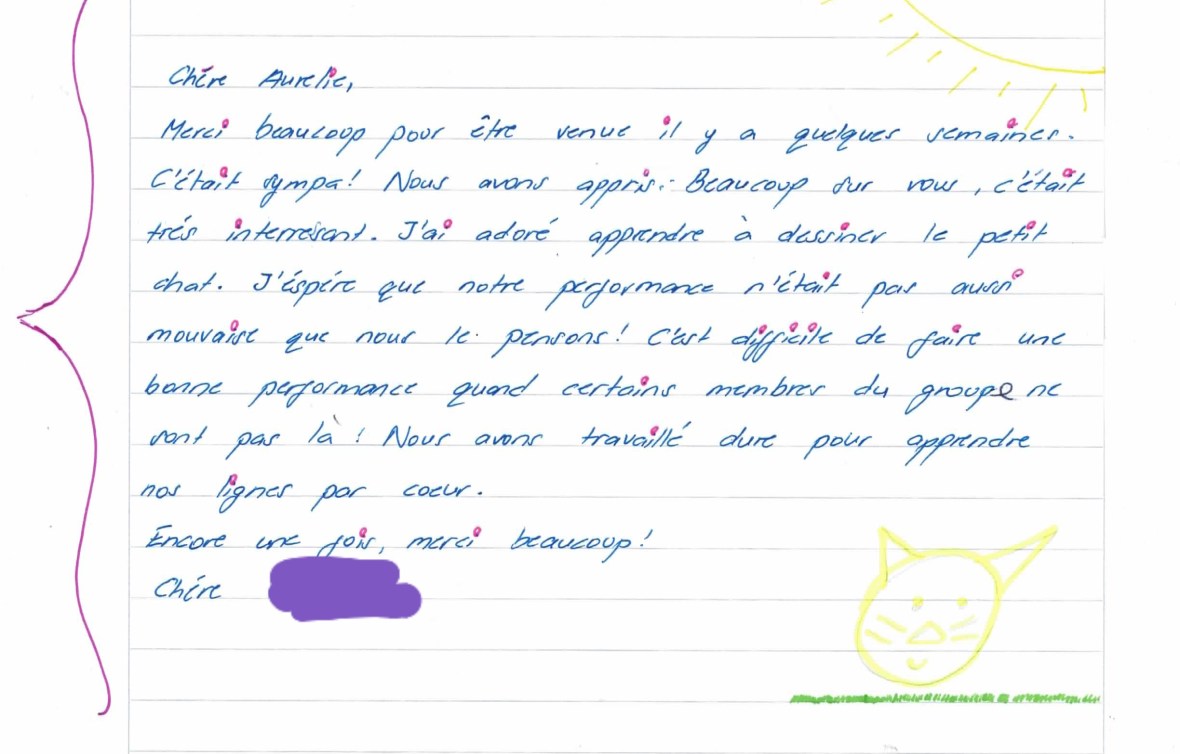 Chére Aurelie,
Merci beaucoup pour être venue il y a quelques semaines.
C'était sympa! Nous avons appris. Beaucoup sur vous, c'était
trés interresant. J'ai adoré apprendre à dessiner le petit
chat. J'éspére que notre performance n'était pas aussi
mouvaise que nous le pensons! C'est difficile de faire une
bonne performance quand certains membres du groupe ne
sont pas là! Nous avons travaillé dure pour apprendre
nos lignes par coeur.
Encore une fois, merci beaucoup!
Chére